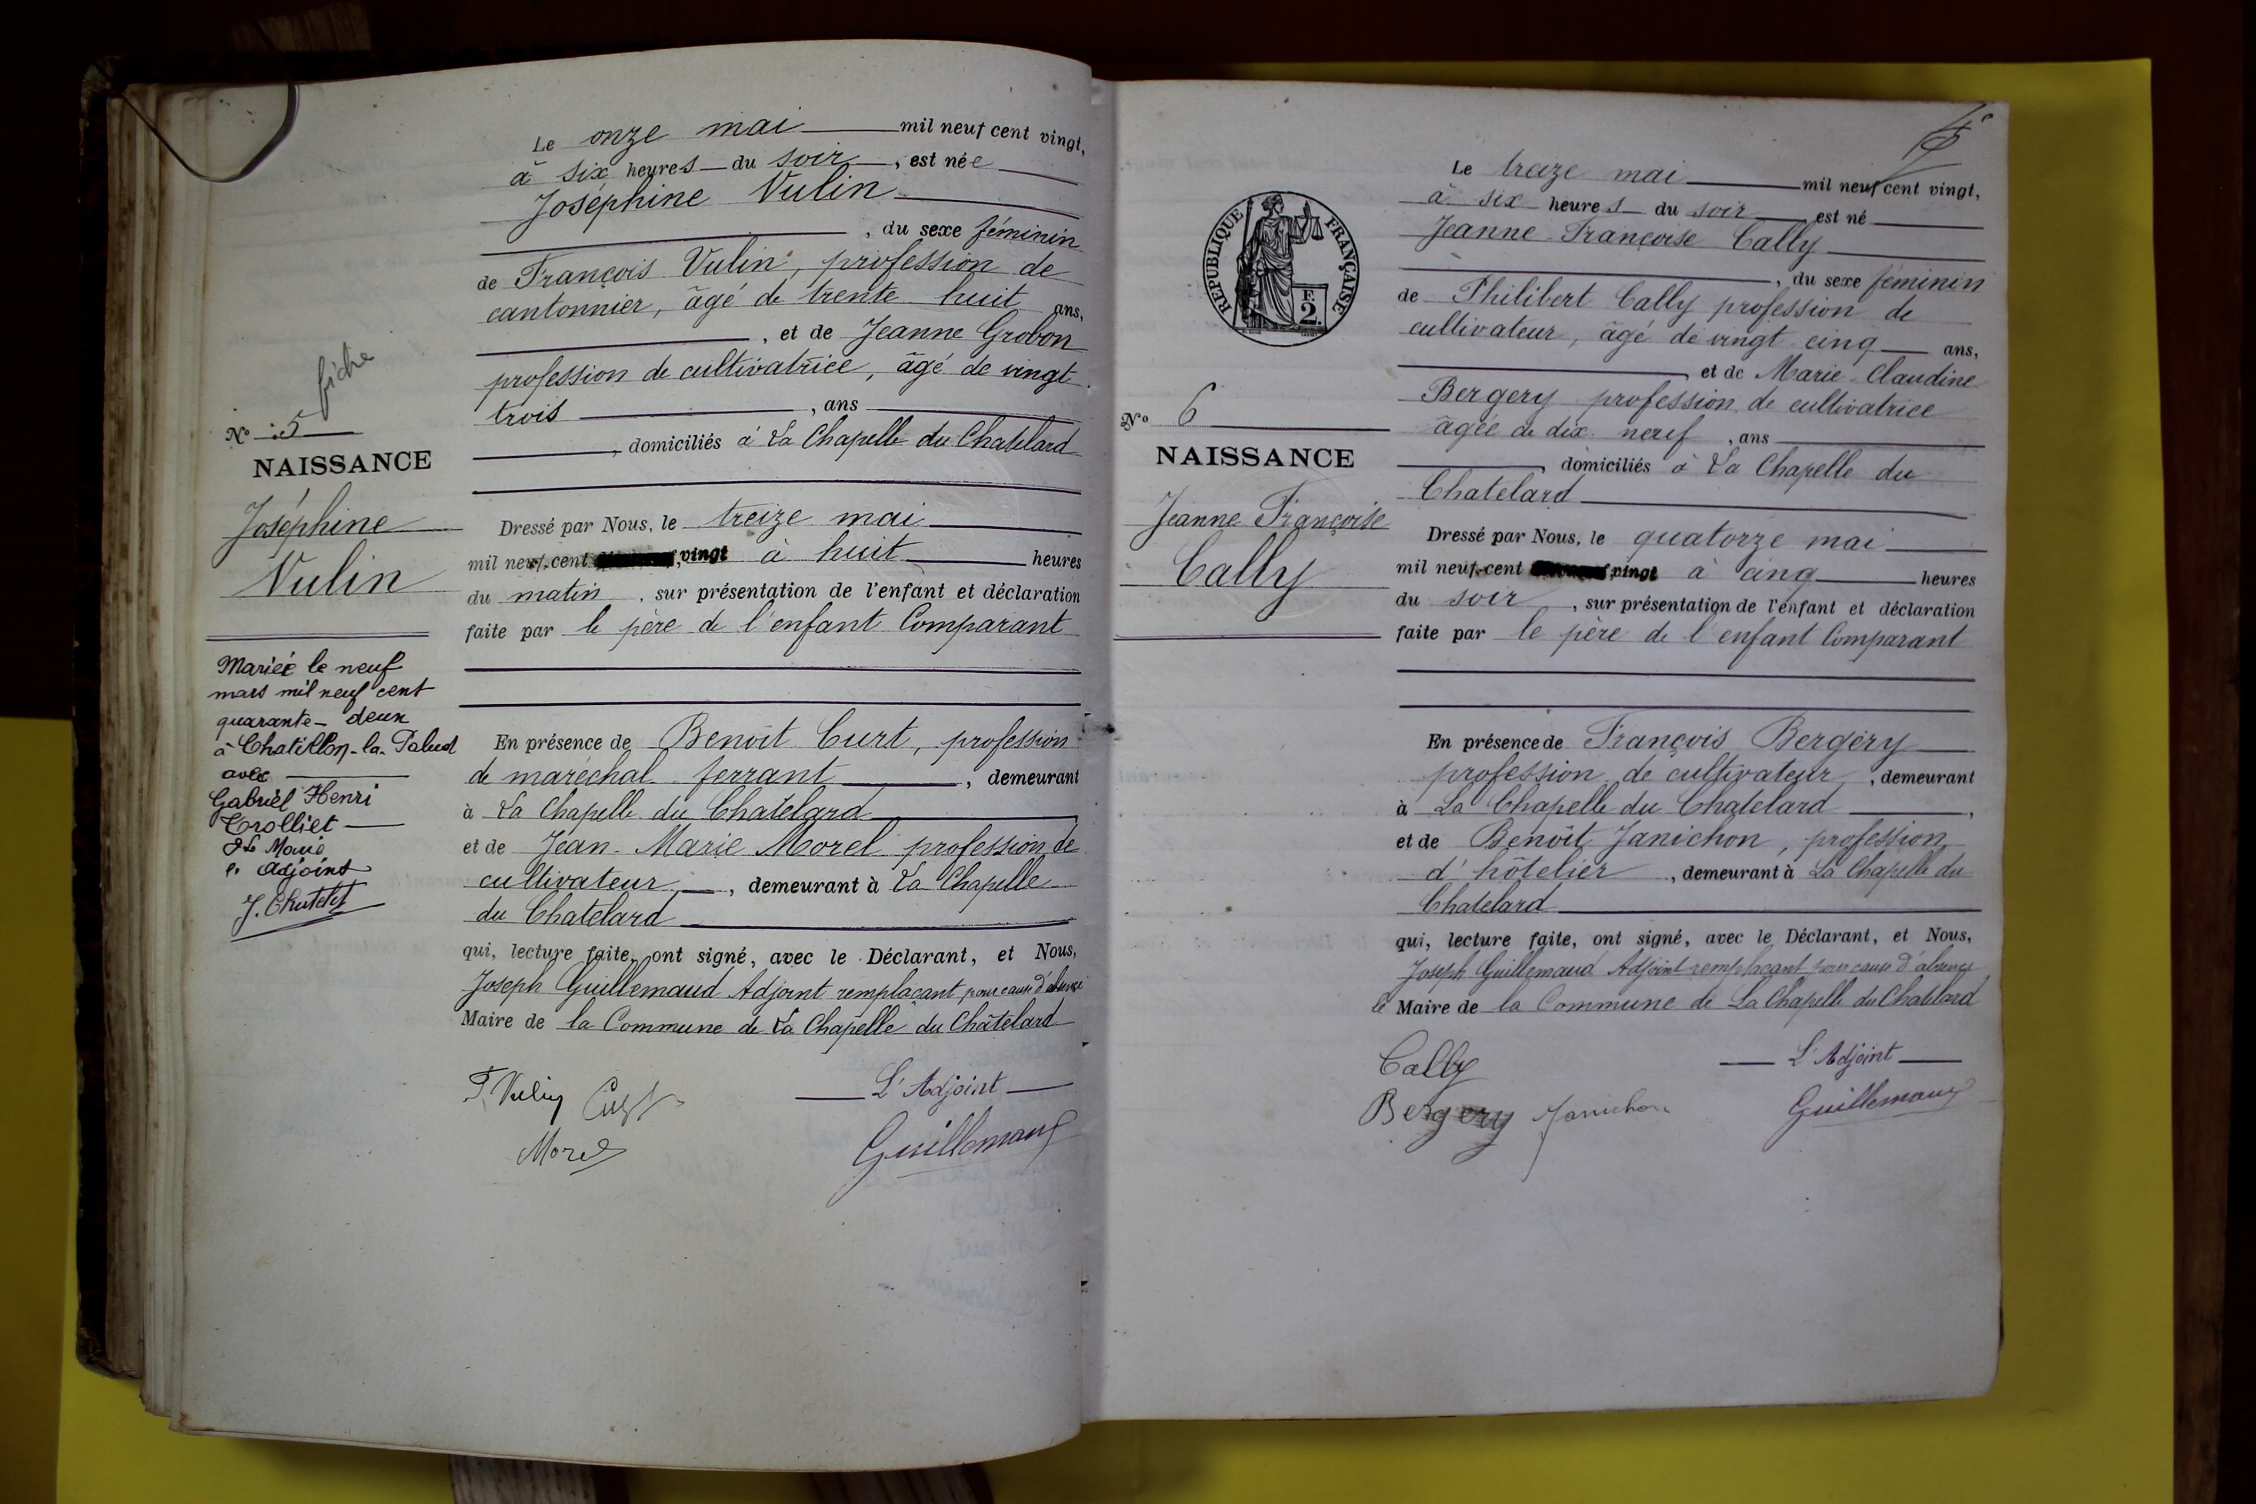 fiche
N° 5
NAISSANCE
Joséphine
Vulin
Mariée le neuf
mars mil neuf cent
quarante-deux
à Chatillon-la-Palud
avec
Gabriel Henri
Trolliet
Le Maire
Adjoint
Le onze mai mil neuf cent vingt,
à six heures du soir, est née
Joséphine Vulin
, du sexe féminin
de François Vulin, profession de
cantonnier, âgé de trente huit ans,
, et de Jeanne Grobon
profession de cultivatrice, âgé de vingt
trois , ans
, domiciliés à La Chapelle du Chatelard
Dressé par Nous, le treize mai
mil neuf cent vingt à huit heures
du matin , sur présentation de l'enfant et déclaration
faite par le père de l'enfant Comparant
En présence de Benoît Curt, profession
de maréchal ferrant , demeurant
à La Chapelle du Chatelard
et de Jean-Marie Morel profession de
cultivateur , demeurant à La Chapelle
du Chatelard
qui, lecture faite, ont signé, avec le Déclarant, et Nous,
Joseph Guillemaud Adjoint remplaçant pour cause d'absence
Maire de la Commune de La Chapelle du Châtelard
L'Adjoint
F. Vulin Curt
Morel
Guillemaud
REPUBLIQUE FRANÇAISE
F.
2.
N° 6
NAISSANCE
Jeanne Françoise
Cally
Le treize mai mil neuf cent vingt,
à six heures du soir , est né
Jeanne-Françoise Cally
, du sexe féminin
de Philibert Cally profession de
cultivateur, âgé de vingt cinq ans,
et de Marie-Claudine
Bergery profession de cultivatrice
âgée de dix-neuf , ans
, domiciliés à La Chapelle du
Chatelard
Dressé par Nous, le quatorze mai
mil neuf cent vingt à cinq heures
du soir , sur présentation de l'enfant et déclaration
faite par le père de l'enfant Comparant
En présence de François Bergéry
profession de cultivateur , demeurant
à La Chapelle du Chatelard ,
et de Benoît Janichon, profession
d'hôtelier , demeurant à La Chapelle du
Chatelard
qui, lecture faite, ont signé, avec le Déclarant, et Nous,
Joseph Guillemaud Adjoint remplaçant pour cause d'absence
le Maire de la Commune de La Chapelle du Chatelard
Cally
L'Adjoint
Bergery Janichon
Guillemaud